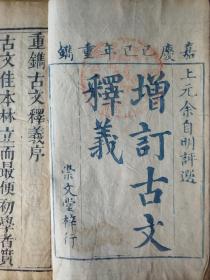 嘉慶己巳年重鐫
上元余自明評選
增訂古文
釋義
崇文堂梓行
重鐫古文釋義序
古文佳本林立而最便初學者實